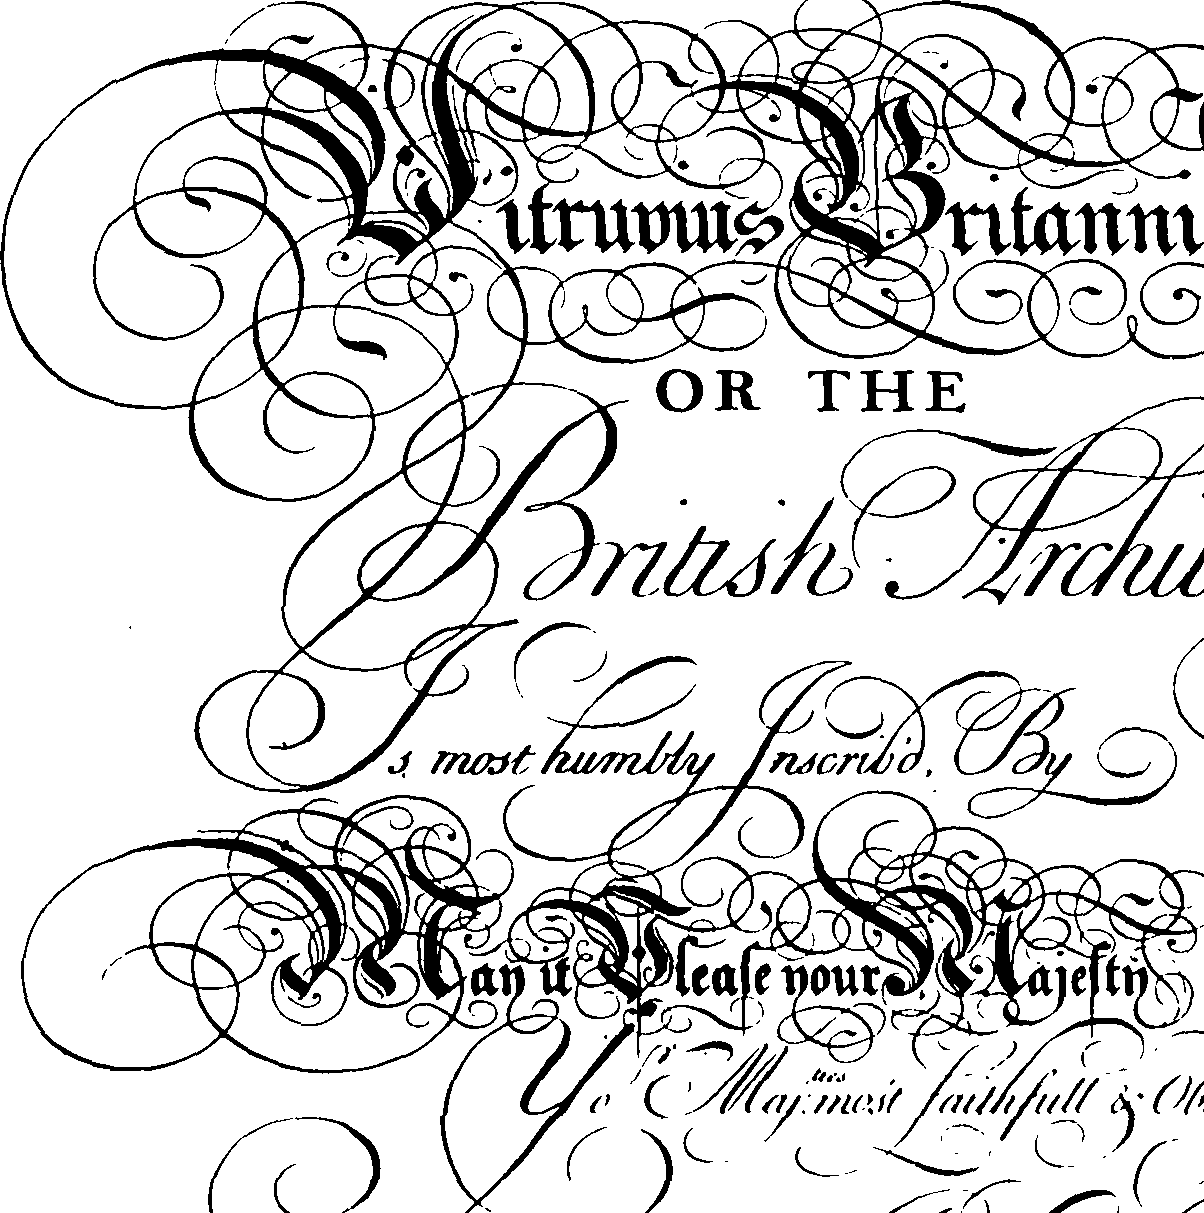 Vitruvius Britanni
OR THE
British Archit
Is most humbly Inscrib'd, By
May it Please your Majesty
Yor Majties most faithfull & Ob